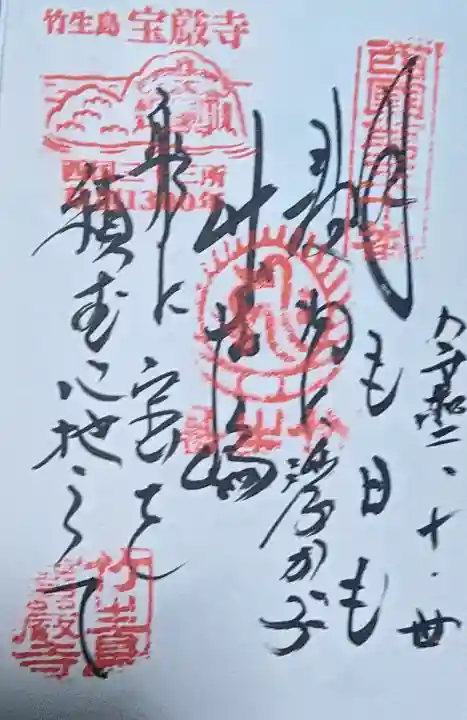 令和二、十、廿
西國第三十番
月も日も
波間に浮かぶ
竹生島
舟に宝を
積む心地して
竹生島 宝厳寺
西国三十三所
草創1300年